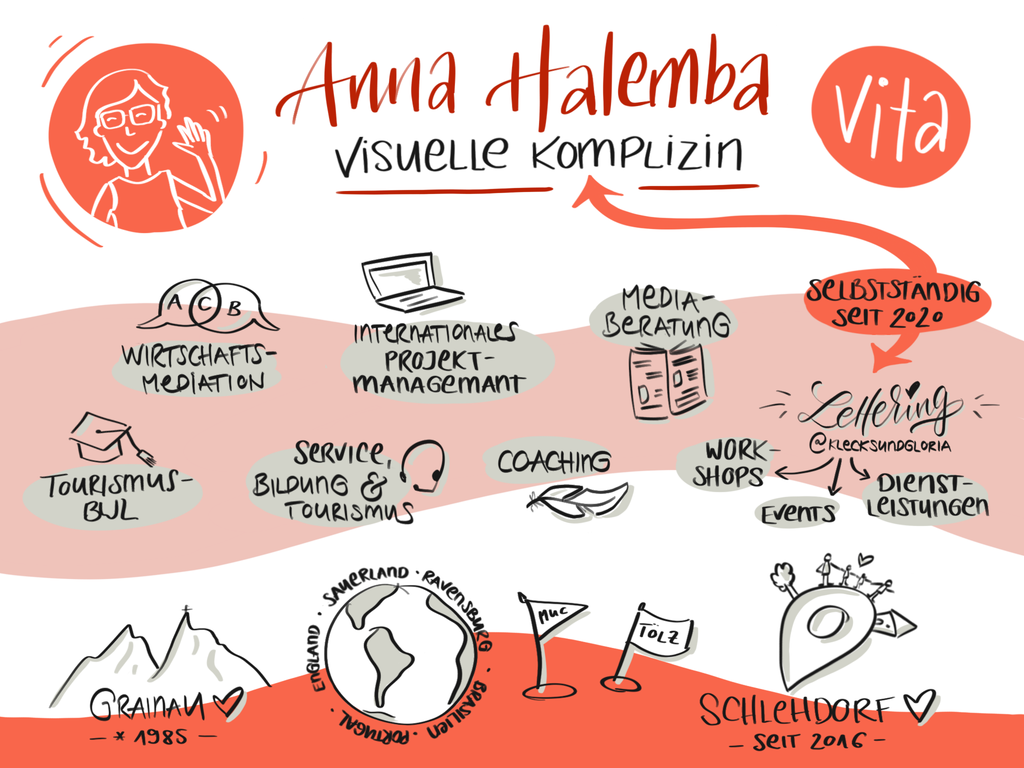 Anna Halemba
Vita
VISUELLE KOMPLIZIN
SELBSTSTÄNDIG
SEIT 2020
A C B
WIRTSCHAFTS-
MEDIATION
INTERNATIONALES
PROJEKT-
MANAGEMANT
MEDIA-
BERATUNG
Lettering
@KLECKSUNDGLORIA
WORK-
SHOPS
EVENTS
DIENST-
LEISTUNGEN
TOURISMUS-
BWL
SERVICE,
BILDUNG &
TOURISMUS
COACHING
GRAINAU
- * 1985 -
ENGLAND · SAUERLAND · RAVENSBURG · BRASILIEN · PORTUGAL ·
MUC
TÖLZ
SCHLEHDORF
- SEIT 2016 -